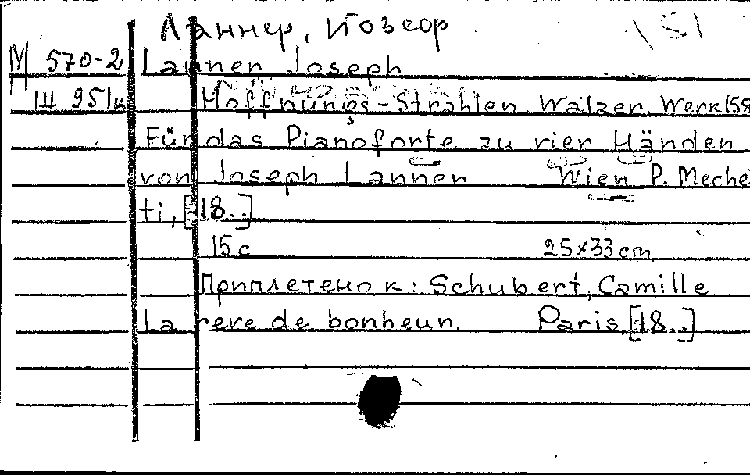 Ланнер, Йозеф
М 570-2 Lanner Joseph
III 951и Hoffnungs-Strahlen Walzer Werk 158
Für das Pianoforte zu vier Händen
von Joseph Lanner Wien P. Meche
ti, [18..]
15 с 25х33 cm
Приплетено к: Schubert, Camille
La reve de bonheur. Paris [18..]